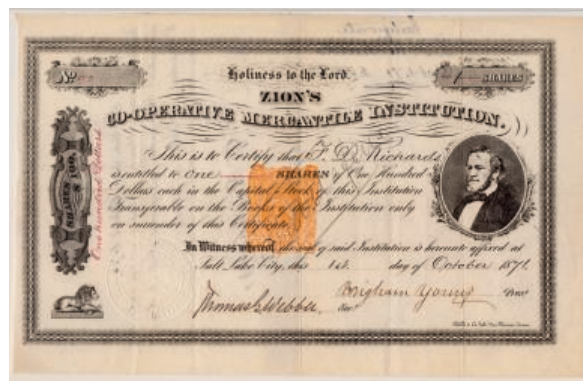 Nº
Holiness to the Lord.
1 SHARES
ZION'S
CO-OPERATIVE MERCANTILE INSTITUTION.
This is to Certify that F. D. Richards
is entitled to one SHARES of One Hundred
Dollars each in the Capital Stock of this Institution
Transferable on the Books of the Institution only
on surrender of this Certificate.
SHARES $100.
One hundred Dollars
In Witness whereof the seal of said Institution is hereunto affixed at
Salt Lake City, this 1st. day of October 1871.
Thomas G. Webber, Sec. Brigham Young Prest